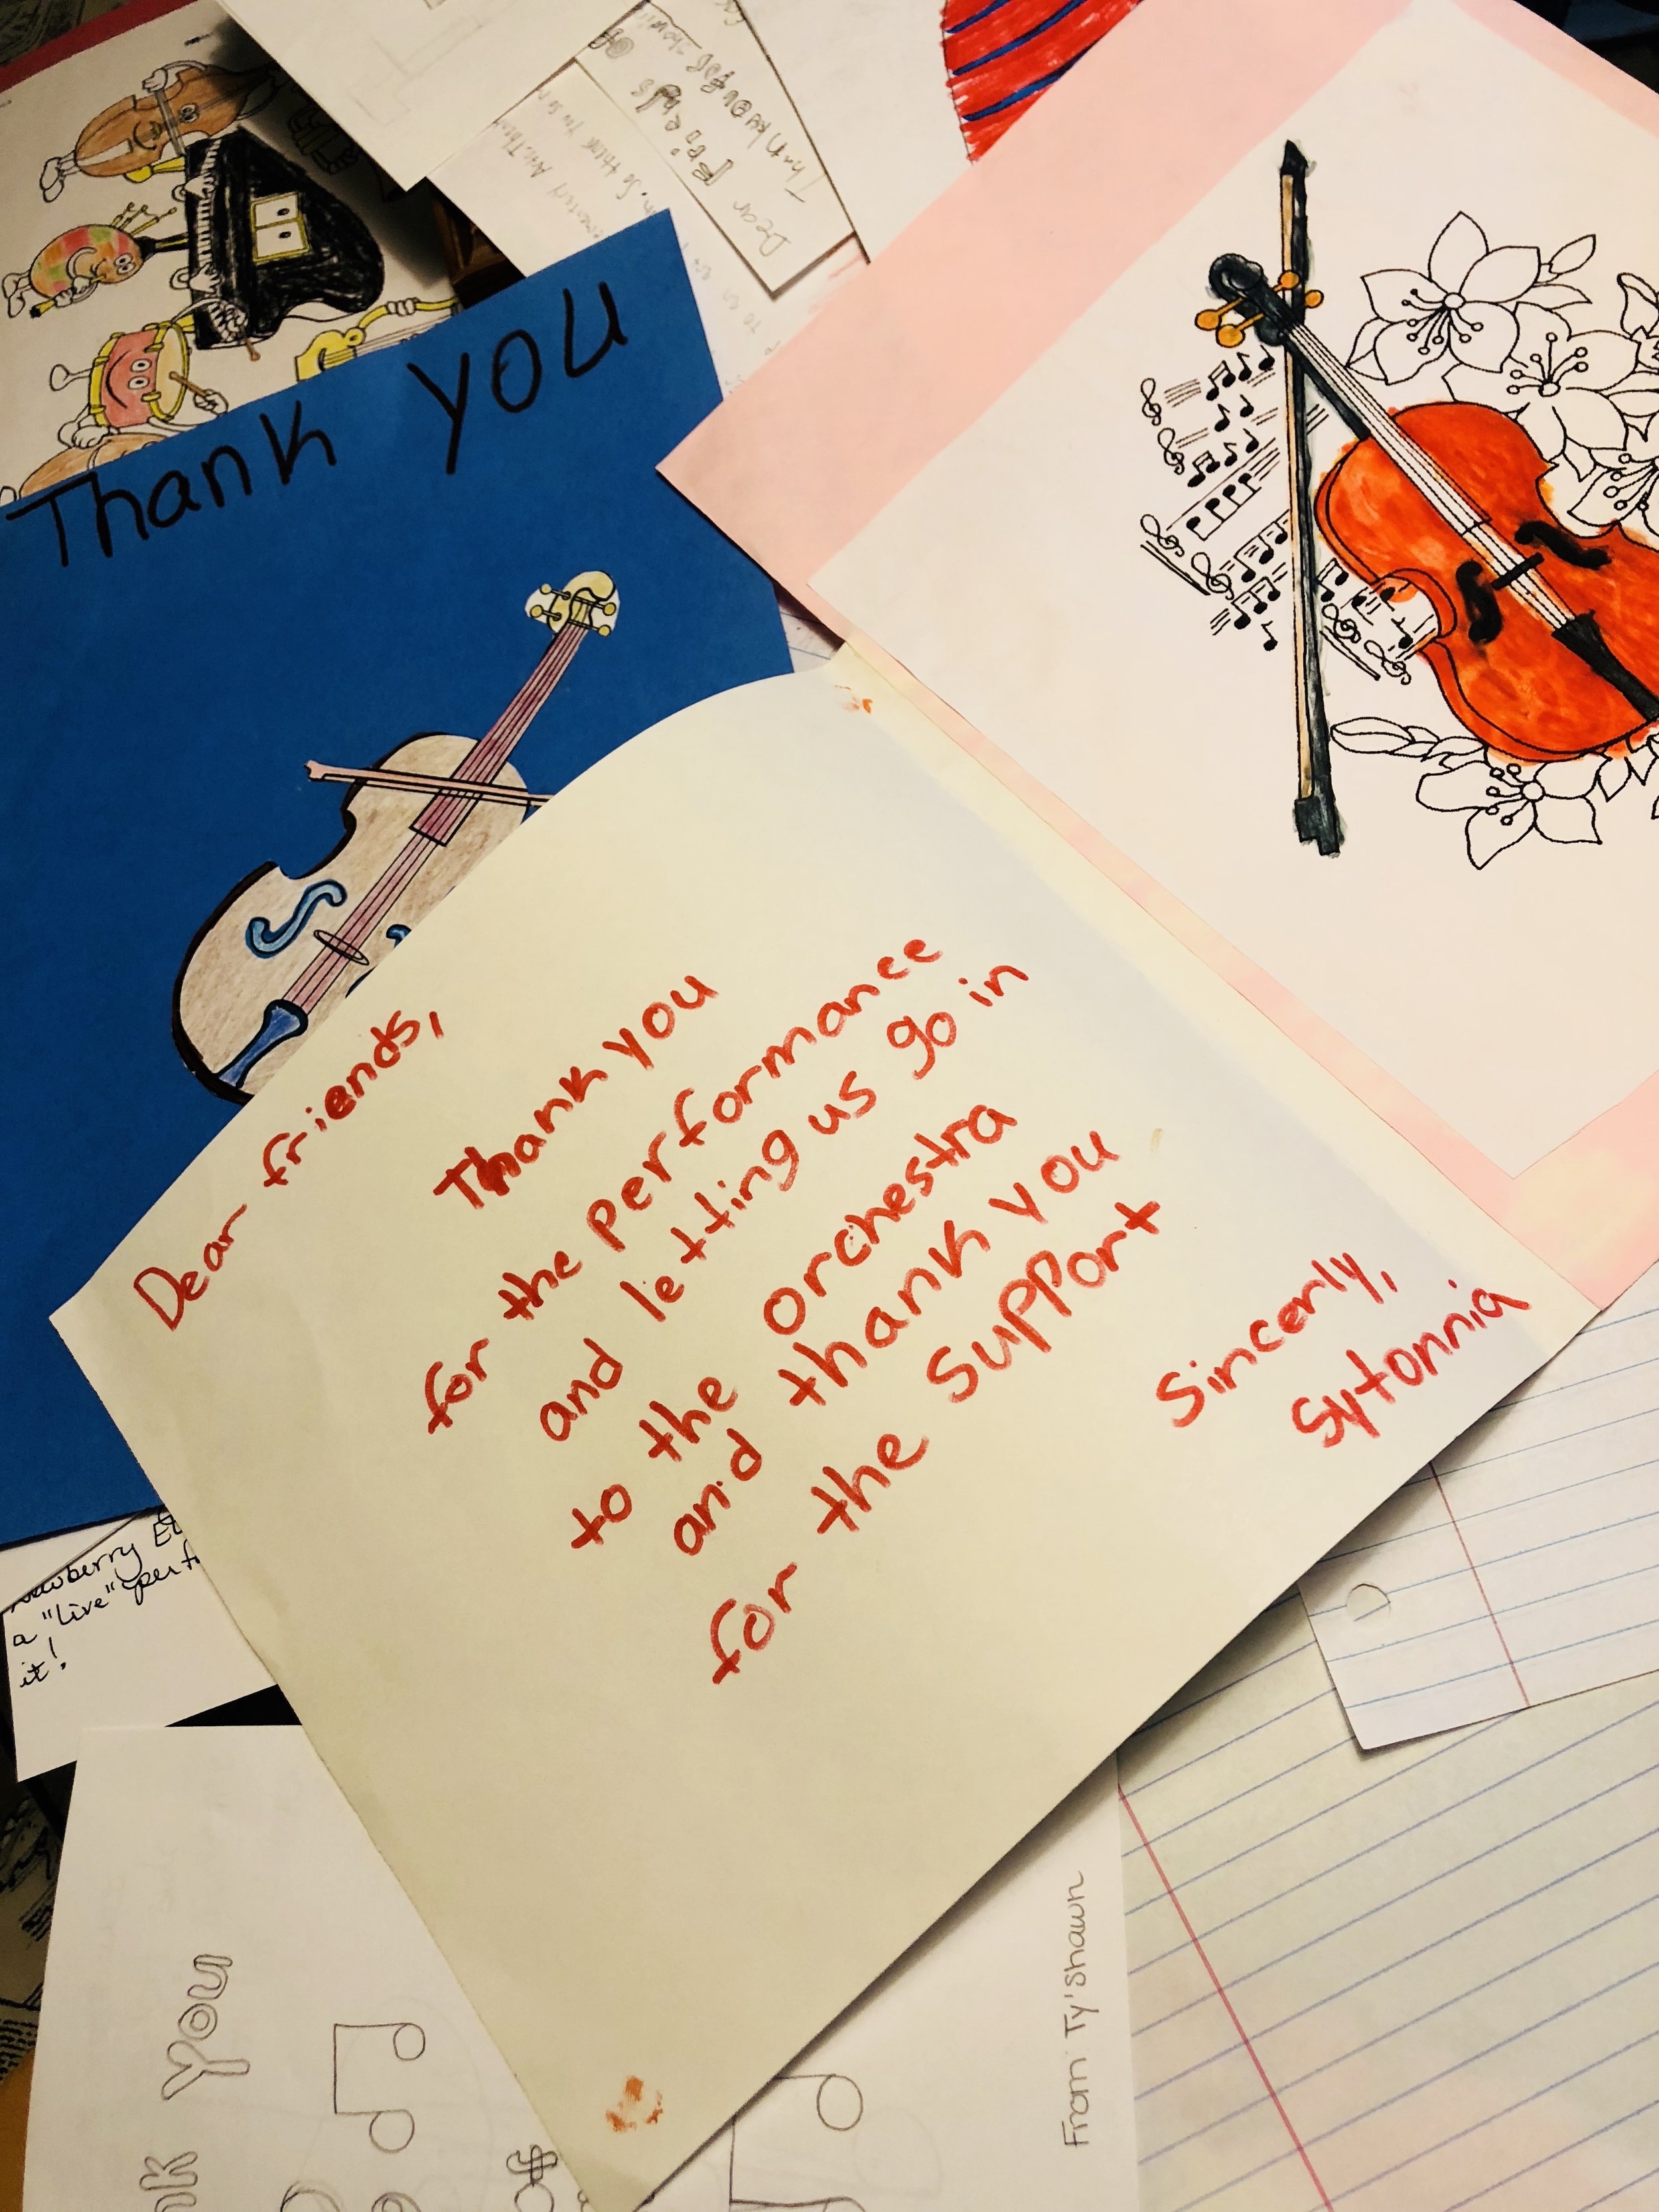 Thank you
Dear friends,
Thank you
for the performance
and letting us go in
to the orchestra
and thank you
for the support
Sincerly,
Sytonnia
Dear Friends
Thank you for
a "live"
it!
You
From Ty'shawn